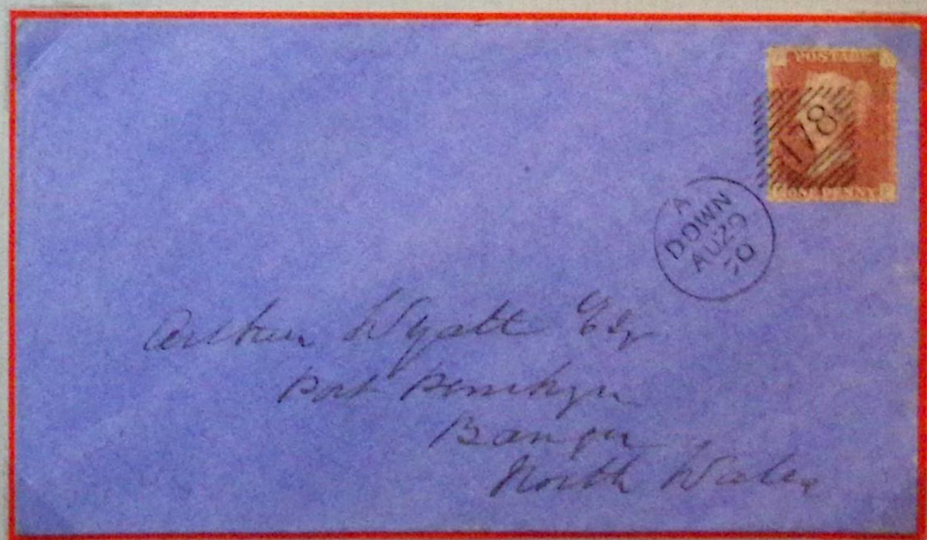 POSTAGE
178
ONE PENNY
A
DOWN
AU 29
70
Arthur Wyatt Esq
Port Penrhyn
Bangor
North Wales